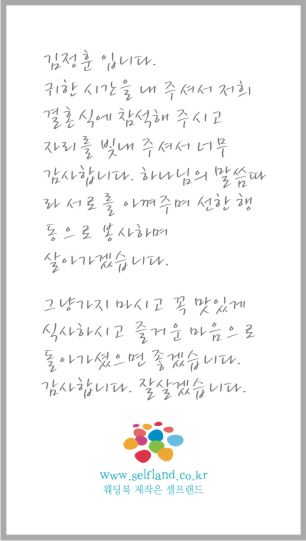 김정훈 입니다.
귀한 시간을 내 주셔서 저희
결혼식에 참석해 주시고
자리를 빛내 주셔서 너무
감사합니다. 하나님의 말씀따
라 서로를 아껴주며 선한 행
동으로 봉사하며
살아가겠습니다.
그냥가지 마시고 꼭 맛있게
식사하시고 즐거운 마음으로
돌아가셨으면 좋겠습니다.
감사합니다. 잘살겠습니다.
www.selfland.co.kr
웨딩북 제작은 셀프랜드